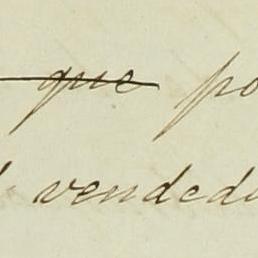 que po
vended